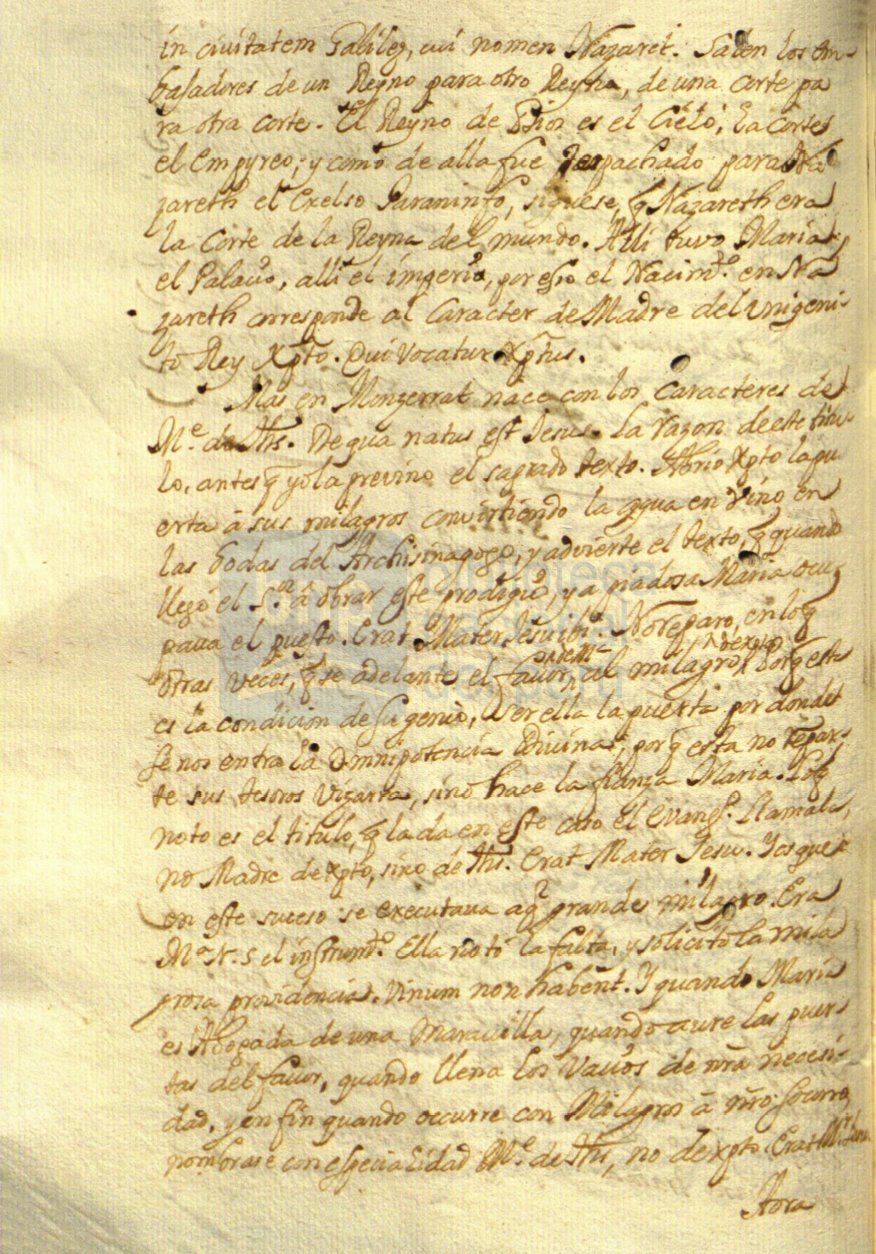 in civitatem Galileę, cui nomen Nazaret. Salen los em-
baxadores de un Reyno para otro Reyno, de una corte pa
ra otra corte. El Reyno de Dios es el Cielo, la corte es
el Empyreo; y como de alla fue despachado para Na
zareth el Excelso Paraninfo, siguese, q̃ Nazareth era
la Corte de la Reyna del mundo. Alli tuvo Maria
el Palacio, alli el imperio, por esso el Nacim.to en Na
zareth corresponde al Caracter de Madre del Unigeni-
to Rey Xpto. Qui vocatur Xptus.
Mas en Monserrat nace con los Caracteres de
M.e de Jhs. De qua natus est Jesus. La razon de este titu-
lo, antes q̃ yo la previno el sagrado texto. Abrio Xpto la pu
erta â sus milagros convirtiendo la agua en vino en
las bodas del Archisinagogo, y advierte el texto, q̃ quando
llegò el S.or â obrar este prodigio, ya piadosa Maria ocu
paua el puesto. Erat Mater Jesu ibi. No reparo, en lo q̃
otras veces, q̃ se adelante el fauor, al milagro. Porq̃ esta
es la condicion de su genio, ser ella la puerta por donde
se nos entra la Omnipotencia Divina; por q̃ esta no repar-
te sus tesoros vizarra, sino hace la fianza Maria. Lo q̃
noto es el titulo, q̃ la da en este caso el evang.ta Llamala,
no Madre de Xpto, sino de Jhs. Erat Mater Jesu. Y es que
en este suceso se executava aq.l grande milagro. Era
M.a N. S. el instrum.to Ella notò la falta, y solicitò la mila
grosa providencia. Vinum non habent. Y quando Maria
es Abogada de una maravilla, quando aure las puer-
tas del fauor, quando llena los vacios de nrã necesi-
dad, y en fin quando occurre con Milagros â nrõ socorro
nombrase con especialidad M.e de Jhs, no de Xpto. Erat M.r Jesu.
Aora
biblioteca
nacional
del perú